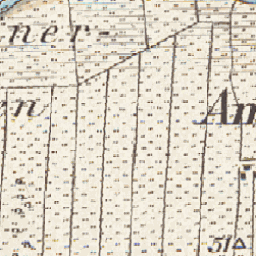 ner-
en
Am
51